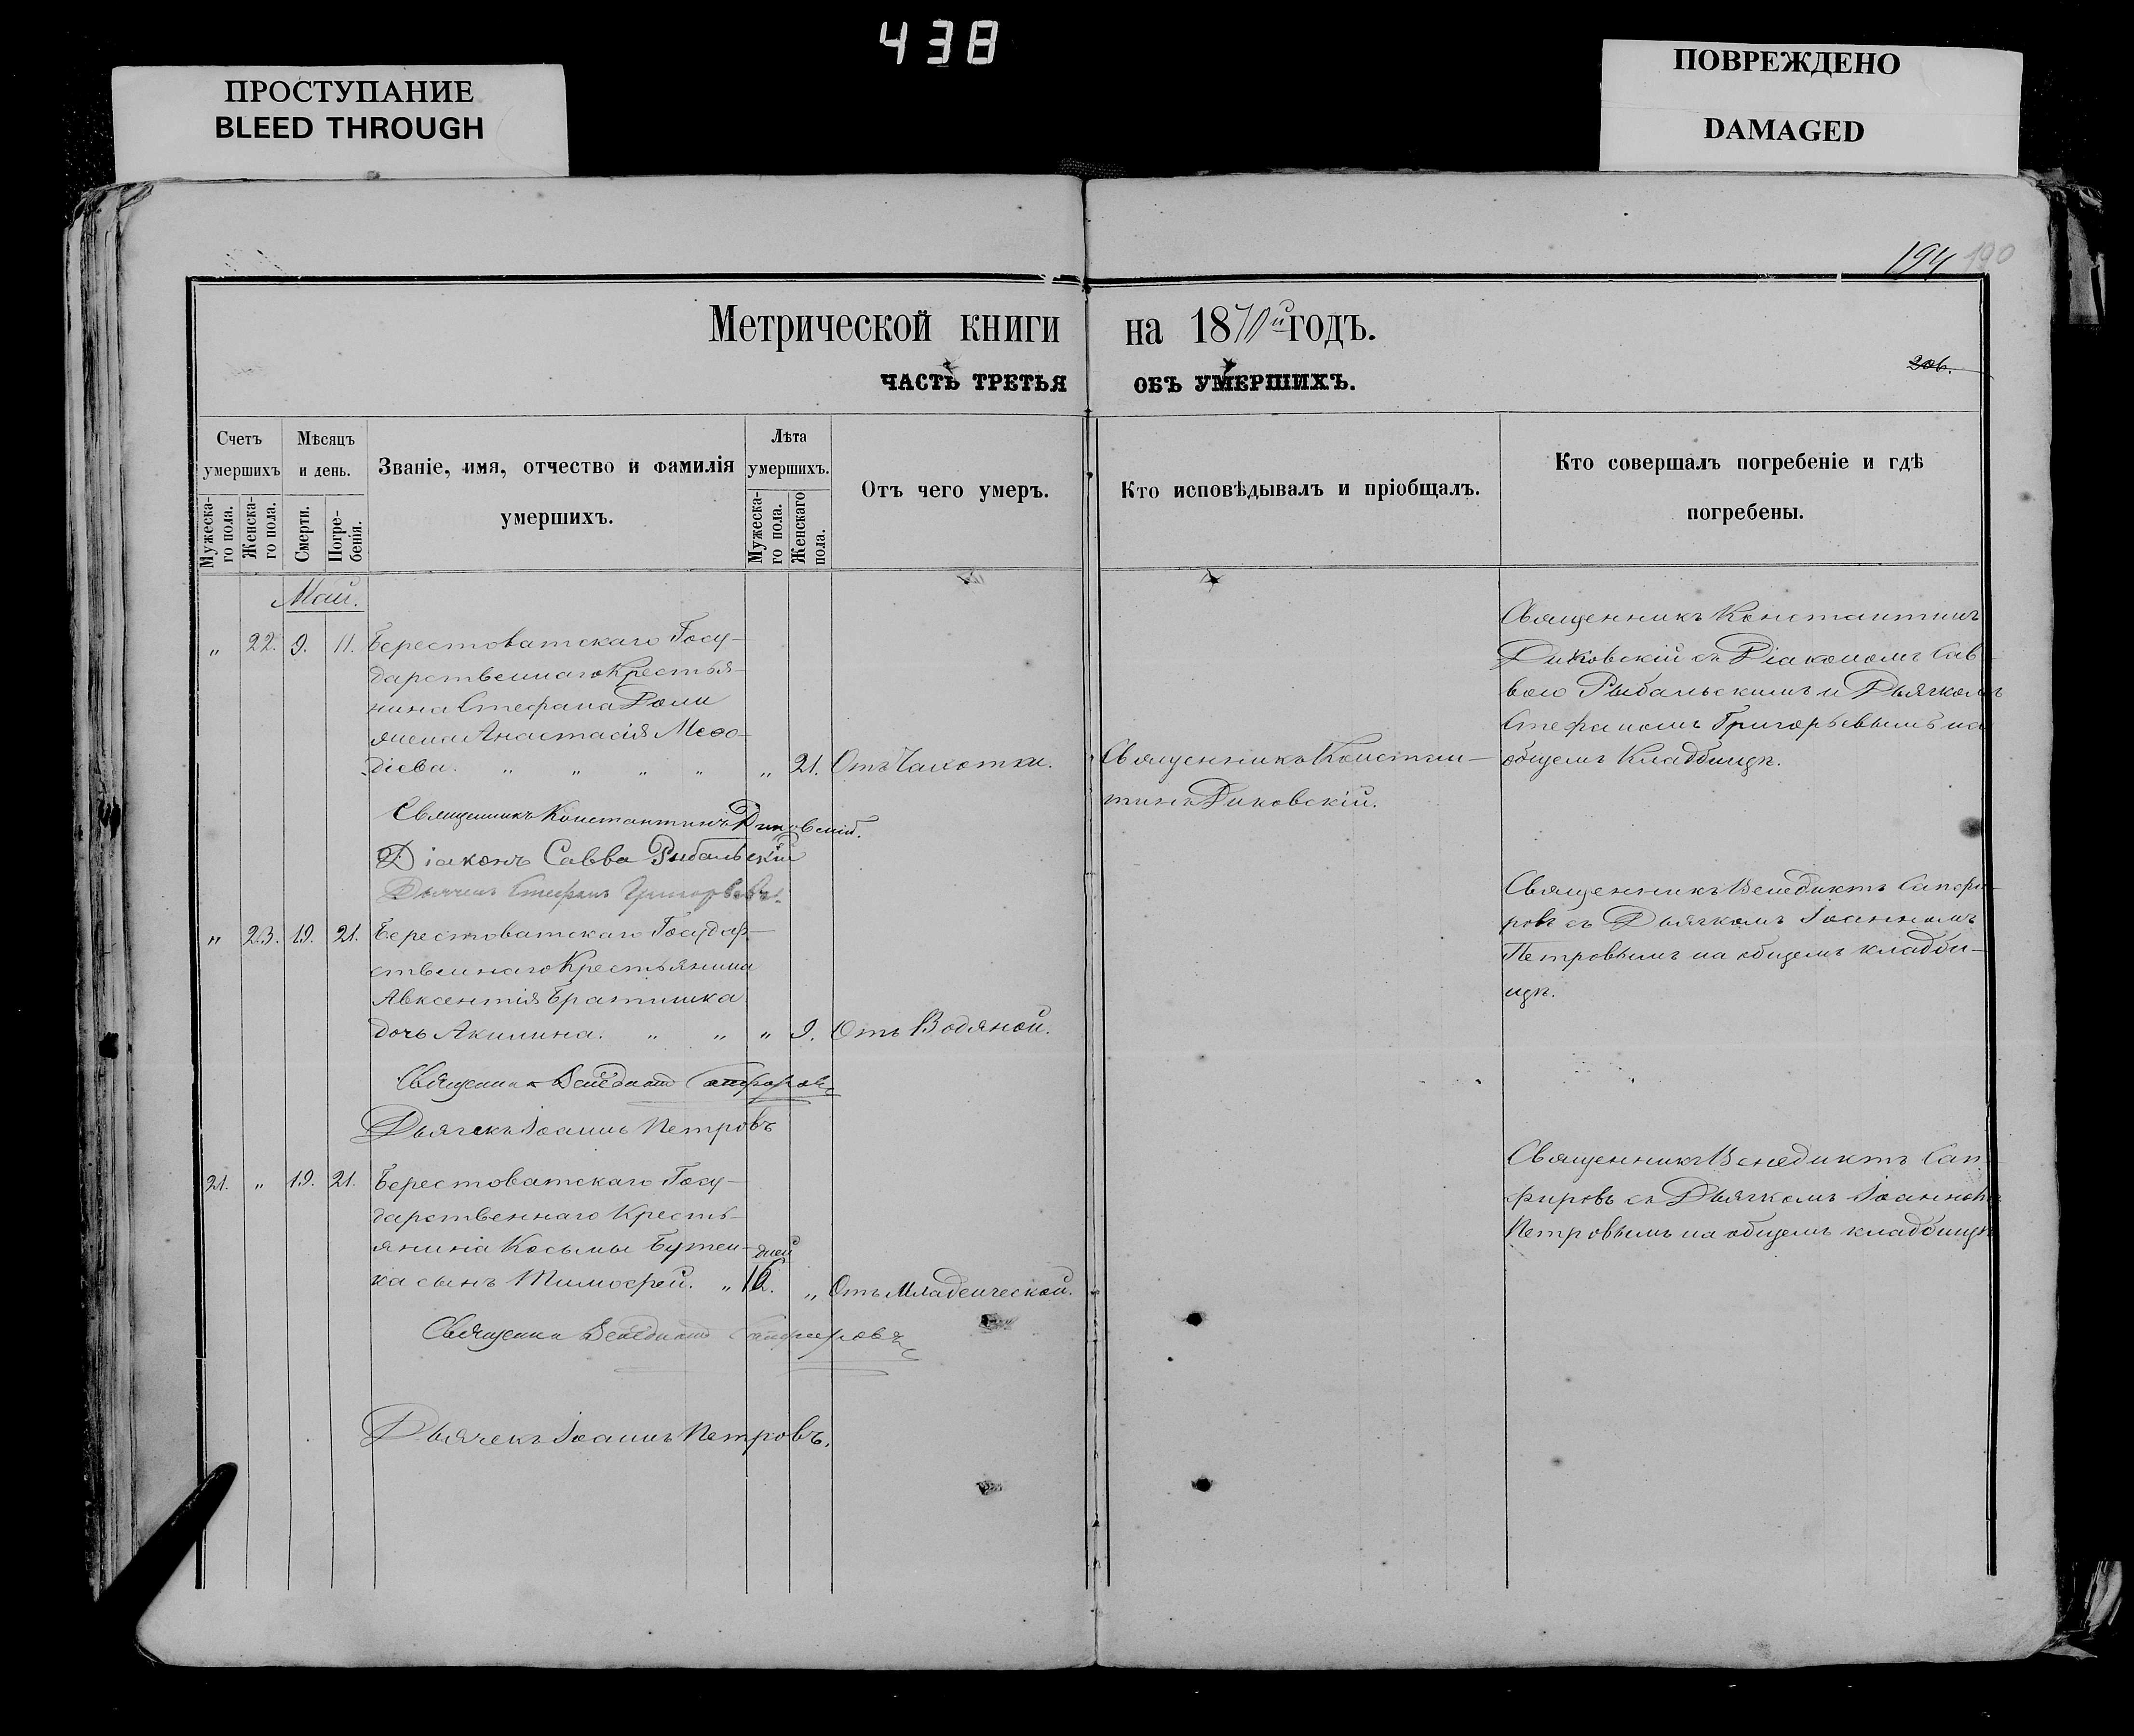 438
ПРОСТУПАНИЕ
BLEED THROUGH
ПОВРЕЖДЕНО
DAMAGED
194 190
Метрической книги на 1870й годъ.
ЧАСТЬ ТРЕТЬЯ ОБЪ УМЕРШИХЪ.
Счетъ умершихъ
Мужеска-го пола.
Женска-го пола.
Мѣсяцъ и день.
Смерти.
Погре-бенія.
Званіе, имя, отчество и фамилія
умершихъ.
Лѣта умершихъ.
Мужеска-го пола.
Женскаго пола.
Отъ чего умеръ.
Кто исповѣдывалъ и пріобщалъ.
Кто совершалъ погребеніе и гдѣ
погребены.
Май.
„ 22. 9. 11. Берестоватскаго Госу-
дарственнаго Крестья-
нина Стефана
жена Анастасія Меѳо-
діева. „ „ „ „ „ 21. Отъ Чахотки.
Священникъ Констан-
тинъ Диковскій.
Священникъ Константинъ
Диковскій съ Діакономъ Сав-
вою Рыбальскимъ и Дьячкомъ
Стефаномъ Григорьевымъ на
общемъ Кладбищѣ.
Священникъ Константинъ Диковскій.
Діаконъ Савва Рыбальскій
Дьячекъ Стефанъ Григорьевъ.
„ 23. 19. 21. Берестоватскаго Государ-
ственнаго Крестьянина
Авксентія Братишка
дочь Акилина. „ „ „ 9. Отъ Водяной.
Священникъ Венедиктъ Сапфи-
ровъ съ Дьячкомъ Іоанномъ
Петровымъ на общемъ кладби-
щѣ.
Священникъ Венедиктъ Сапфировъ
Дьячекъ Іоаннъ Петровъ
21. „ 19. 21. Берестоватскаго Госу-
дарственнаго Кресть-
янина Косьмы Бутен-
ка сынъ Тимофей. „ дней „ Отъ Младенческой.
Священникъ Венедиктъ Сап-
фировъ съ Дьячкомъ Іоанномъ
Петровымъ на общемъ кладбищѣ
Священникъ Венедиктъ Сапфировъ
Дьячекъ Іоаннъ Петровъ.